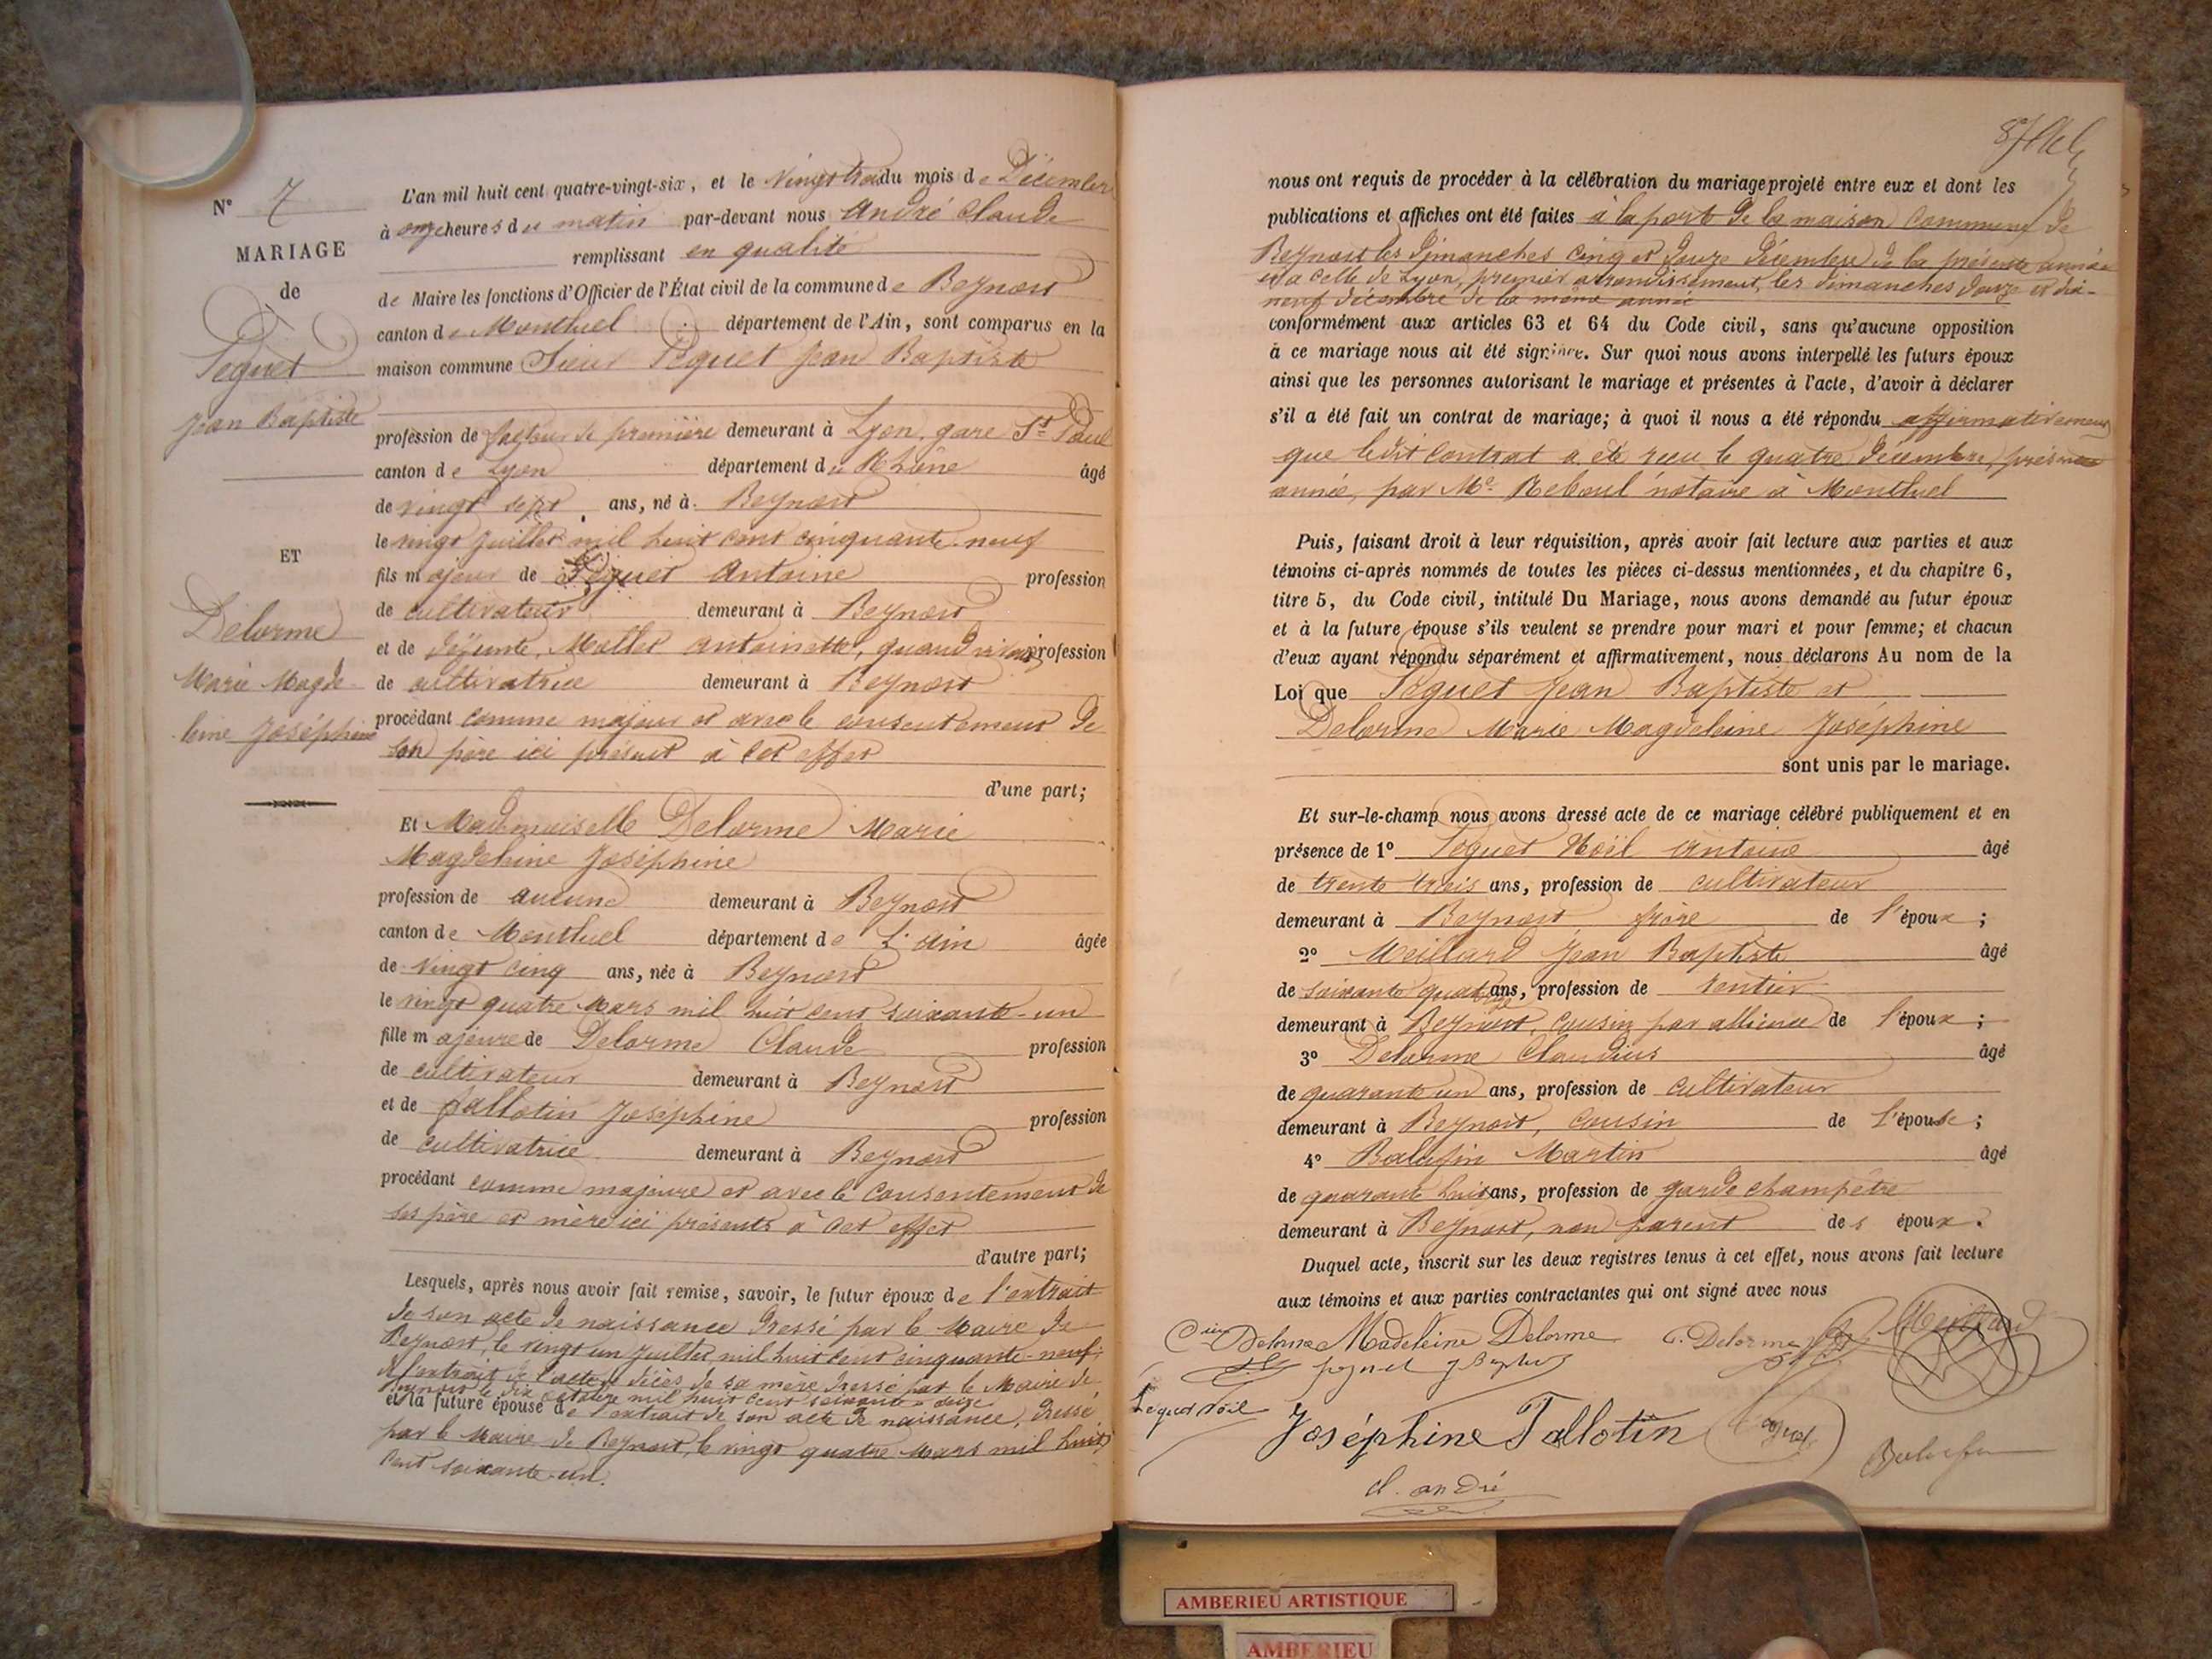 N° 7
MARIAGE
de
Peguet
Jean Baptiste
ET
Delorme
Marie Magde-
leine Joséphine
L'an mil huit cent quatre-vingt-six, et le vingt trois du mois de Décembre
à onze heures du matin par-devant nous André Claude
remplissant en qualité
de Maire les fonctions d'Officier de l'État civil de la commune de Beynost
canton de Montluel département de l'Ain, sont comparus en la
maison commune Sieur Peguet Jean Baptiste
profession de facteur de première demeurant à Lyon, gare St Paul
canton de Lyon département du Rhône âgé
de vingt sept ans, né à Beynost
le vingt juillet mil huit cent cinquante-neuf
fils majeur de Peguet Antoine profession
de cultivateur demeurant à Beynost
et de défunte Mallet Antoinette, quand vivait profession
de cultivatrice demeurant à Beynost
procédant comme majeur et avec le consentement de
son père ici présent à cet effet
d'une part;
Et Mademoiselle Delorme Marie
Magdeleine Joséphine
profession de aucune demeurant à Beynost
canton de Montluel département de L'Ain âgée
de vingt cinq ans, née à Beynost
le vingt quatre Mars mil huit cent soixante-un
fille majeure de Delorme Claude profession
de cultivateur demeurant à Beynost
et de Tallotin Joséphine profession
de cultivatrice demeurant à Beynost
procédant comme majeure et avec le consentement de
ses père et mère ici présents à cet effet
d'autre part;
Lesquels, après nous avoir fait remise, savoir, le futur époux de l'extrait
de son acte de naissance dressé par le Maire de
Beynost, le vingt un juillet mil huit cent cinquante-neuf;
de l'extrait de l'acte de décès de sa mère dressé par le Maire de
Beynost le dix octobre mil huit cent soixante-
et la future épouse de l'extrait de son acte de naissance, dressé
par le Maire de Beynost, le vingt quatre Mars mil huit
cent soixante-un.
nous ont requis de procéder à la célébration du mariage projeté entre eux et dont les
publications et affiches ont été faites à la porte de la maison commune de
Beynost les dimanches cinq et douze décembre de la présente année
et à celle de Lyon, premier arrondissement, les dimanches douze et dix-
neuf décembre de la même année
conformément aux articles 63 et 64 du Code civil, sans qu'aucune opposition
à ce mariage nous ait été signifiée. Sur quoi nous avons interpellé les futurs époux
ainsi que les personnes autorisant le mariage et présentes à l'acte, d'avoir à déclarer
s'il a été fait un contrat de mariage; à quoi il nous a été répondu affirmativement
que ledit contrat a été reçu le quatre décembre, présente
année, par Me Reboul notaire à Montluel
Puis, faisant droit à leur réquisition, après avoir fait lecture aux parties et aux
témoins ci-après nommés de toutes les pièces ci-dessus mentionnées, et du chapitre 6,
titre 5, du Code civil, intitulé Du Mariage, nous avons demandé au futur époux
et à la future épouse s'ils veulent se prendre pour mari et pour femme; et chacun
d'eux ayant répondu séparément et affirmativement, nous déclarons Au nom de la
Loi que Peguet Jean Baptiste et
Delorme Marie Magdeleine Joséphine
sont unis par le mariage.
Et sur-le-champ nous avons dressé acte de ce mariage célébré publiquement et en
présence de 1° Peguet Noël Antoine âgé
de trente trois ans, profession de cultivateur
demeurant à Beynost frère de l'époux;
2° Meillard Jean Baptiste âgé
de soixante quatorze ans, profession de rentier
demeurant à Beynost, cousin par alliance de l'époux;
3° Delorme Claudius âgé
de quarante un ans, profession de cultivateur
demeurant à Beynost, cousin de l'épouse;
4° Balufin Martin âgé
de quarante huit ans, profession de garde champêtre
demeurant à Beynost, non parent des époux.
Duquel acte, inscrit sur les deux registres tenus à cet effet, nous avons fait lecture
aux témoins et aux parties contractantes qui ont signé avec nous
Delorme Madeleine Delorme C. Delorme Meillard
peguet J Baptiste
Peguet Noël Joséphine Tallotin Peguet
Balufin
Cl. André
AMBERIEU ARTISTIQUE
AMBERIEU